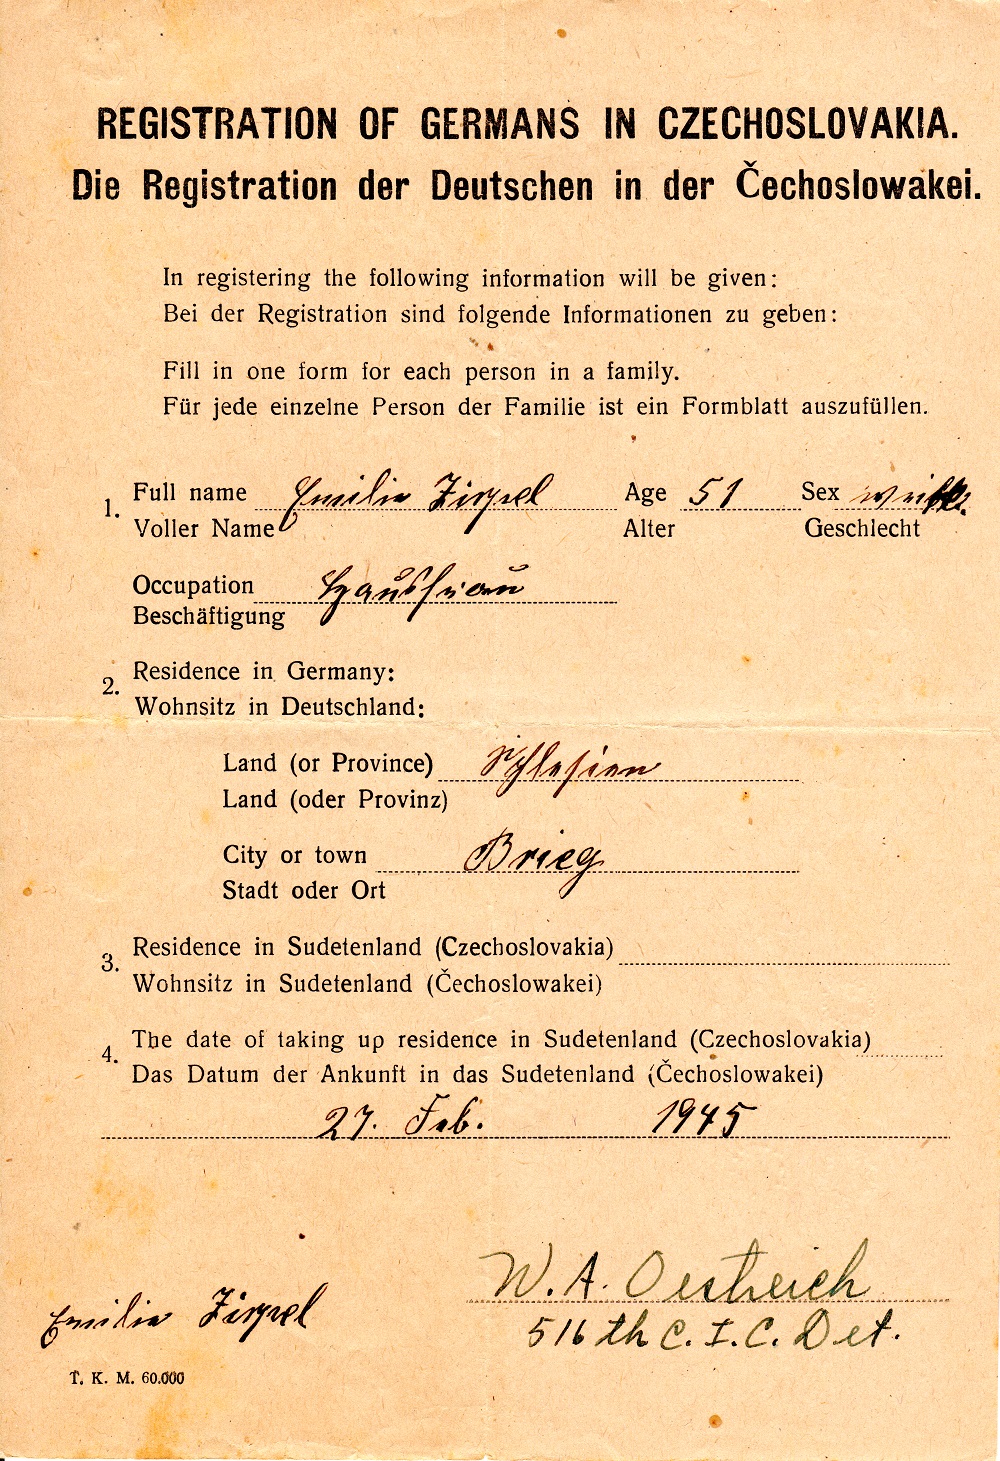 REGISTRATION OF GERMANS IN CZECHOSLOVAKIA.
Die Registration der Deutschen in der Čechoslowakei.
In registering the following information will be given:
Bei der Registration sind folgende Informationen zu geben:
Fill in one form for each person in a family.
Für jede einzelne Person der Familie ist ein Formblatt auszufüllen.
1. Full name Emilie Zirpel Age 51 Sex weibl.
Voller Name Alter Geschlecht
Occupation Hausfrau
Beschäftigung
2. Residence in Germany:
Wohnsitz in Deutschland:
Land (or Province) Schlesien
Land (oder Provinz)
City or town Brieg
Stadt oder Ort
3. Residence in Sudetenland (Czechoslovakia)
Wohnsitz in Sudetenland (Čechoslowakei)
4. The date of taking up residence in Sudetenland (Czechoslovakia)
Das Datum der Ankunft in das Sudetenland (Čechoslowakei)
27. Feb. 1945
W. A. Oestreich
Emilie Zirpel 516th C. I. C. Det.
T. K. M. 60.000